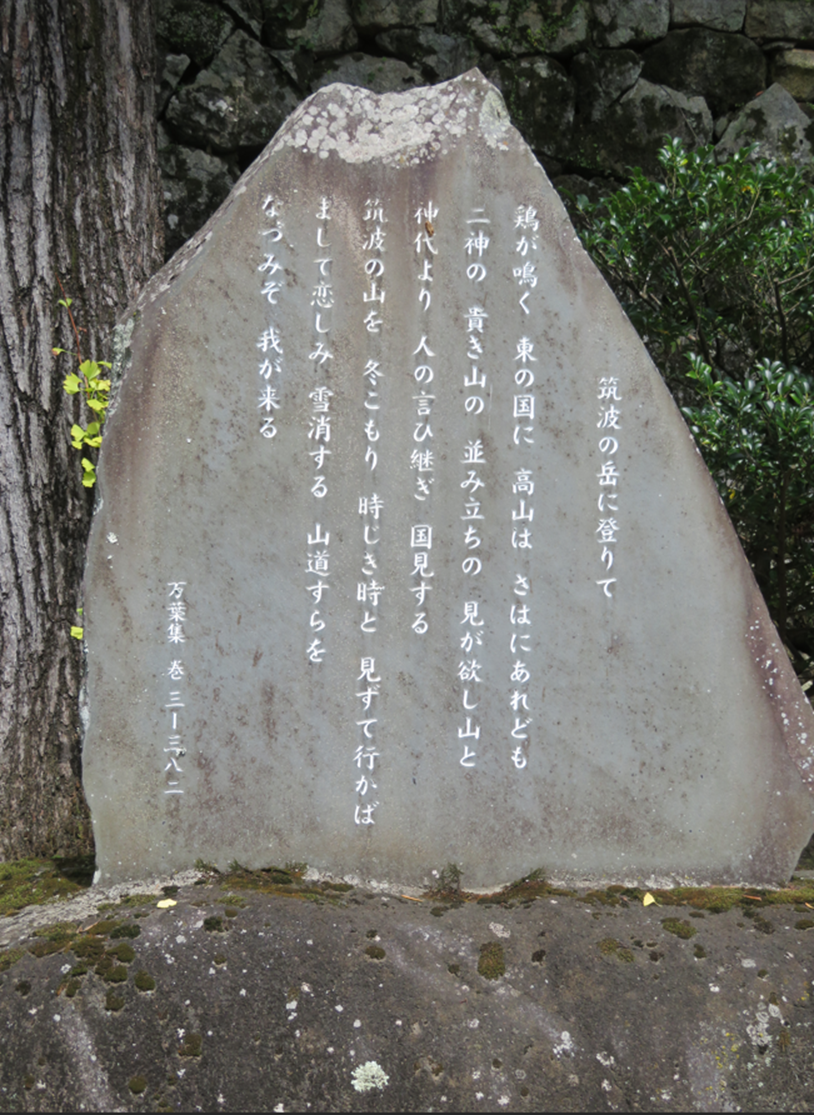 筑波の岳に登りて
鶏が鳴く 東の国に 高山は さはにあれども
二神の 貴き山の 並み立ちの 見が欲し山と
神代より 人の言ひ継ぎ 国見する
筑波の山を 冬こもり 時じき時と 見ずて行かば
まして恋しみ 雪消する 山道すらを
なづみぞ 我が来る
万葉集 巻 三ー三八二